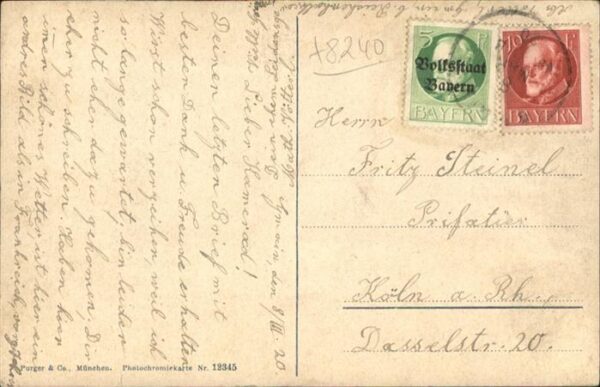 +8240
5 PF
Volksstaat
Bayern
BAYERN
10 PF
BAYERN
Herrn
Fritz Steinel
Prifatier
Köln a. Rh.,
Dasselstr. 20.
Gmain, den 8/III. 20
Lieber Kamerad!
Deinen letzten Brief mit
besten Dank u. Freude erhalten
Wirst schon verzeihen, weil ich
so lange gewartet, bin leider
nicht eher dazu gekommen, Dir
eher zu schreiben. Haben hier
immer schönes Wetter ist hier ein
andres Bild als in Frankreich,
Purger & Co., München. Photochromiekarte Nr. 12345